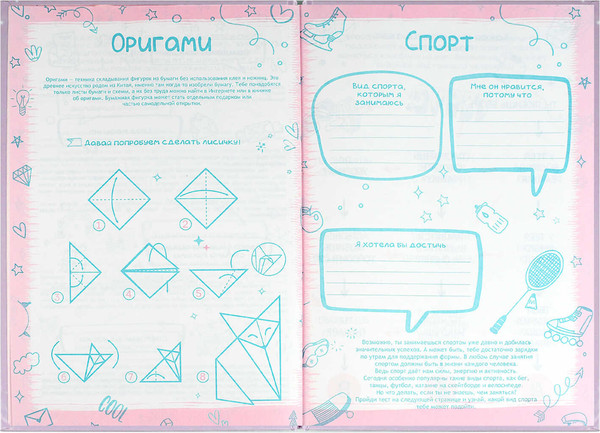 Оригами
Оригами – техника складывания фигурок из бумаги без использования клея и ножниц. Это
древнее искусство родом из Китая, именно там когда-то изобрели бумагу. Тебе понадобятся
только листы бумаги и схема, а их без труда можно найти в Интернете или в книжке
об оригами. Бумажная фигурка может стать отдельным подарком или
частью самодельной открытки.
Давай попробуем сделать лисичку!
1
2
3
4
5
6
7
8
COOL
Спорт
Вид спорта,
которым я
занимаюсь
Мне он нравится,
потому что
Я хотела бы достичь
Возможно, ты занимаешься спортом уже давно и добилась
значительных успехов. А может быть, тебе достаточно зарядки
по утрам для поддержания формы. В любом случае занятия
спортом должны быть в жизни каждого человека.
Ведь спорт даёт нам силы, энергию и активность.
Сегодня особенно популярны такие виды спорта, как бег,
танцы, футбол, катание на скейтборде и велосипеде.
Но что делать, если ты не знаешь, чем заняться?
Пройди тест на следующей странице и узнай, какой вид спорта
тебе может подойти.